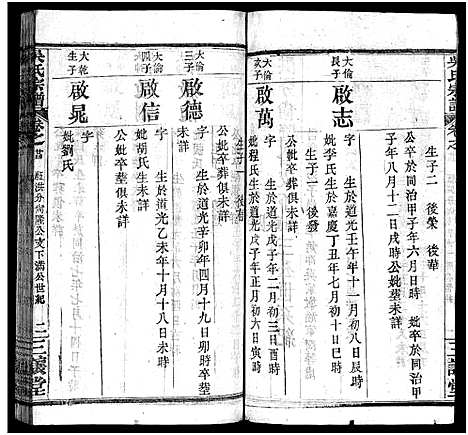 吳氏宗譜 卷之
生子二 後榮 後華
公卒於同治甲子年六月日時 妣卒於同治
子年八月十二日戌時公妣塋未詳
大倫長子
啟志
字 生於道光壬午年十一月初八日辰時
妣李氏生於嘉慶丁丑年七月初十日巳時
公妣卒葬俱未詳
生子一 後發
大倫次子
啟萬
字 生於道光戊子年二月初三日酉時
妣程氏生於道光戊子年正月初六日寅時
公妣卒葬俱未詳
生子一 後
大倫三子
啟德
字 生於道光辛卯年四月十九日卯時卒塋
未詳
大倫四子
啟信
字 生於道光乙未年十月十八日未時
妣胡氏生未詳
公妣卒塋俱未詳
大乾生子
啟晃
字
妣劉氏
吳氏宗譜 卷之 紅洪分 公支下滿公世紀 二 三讓堂